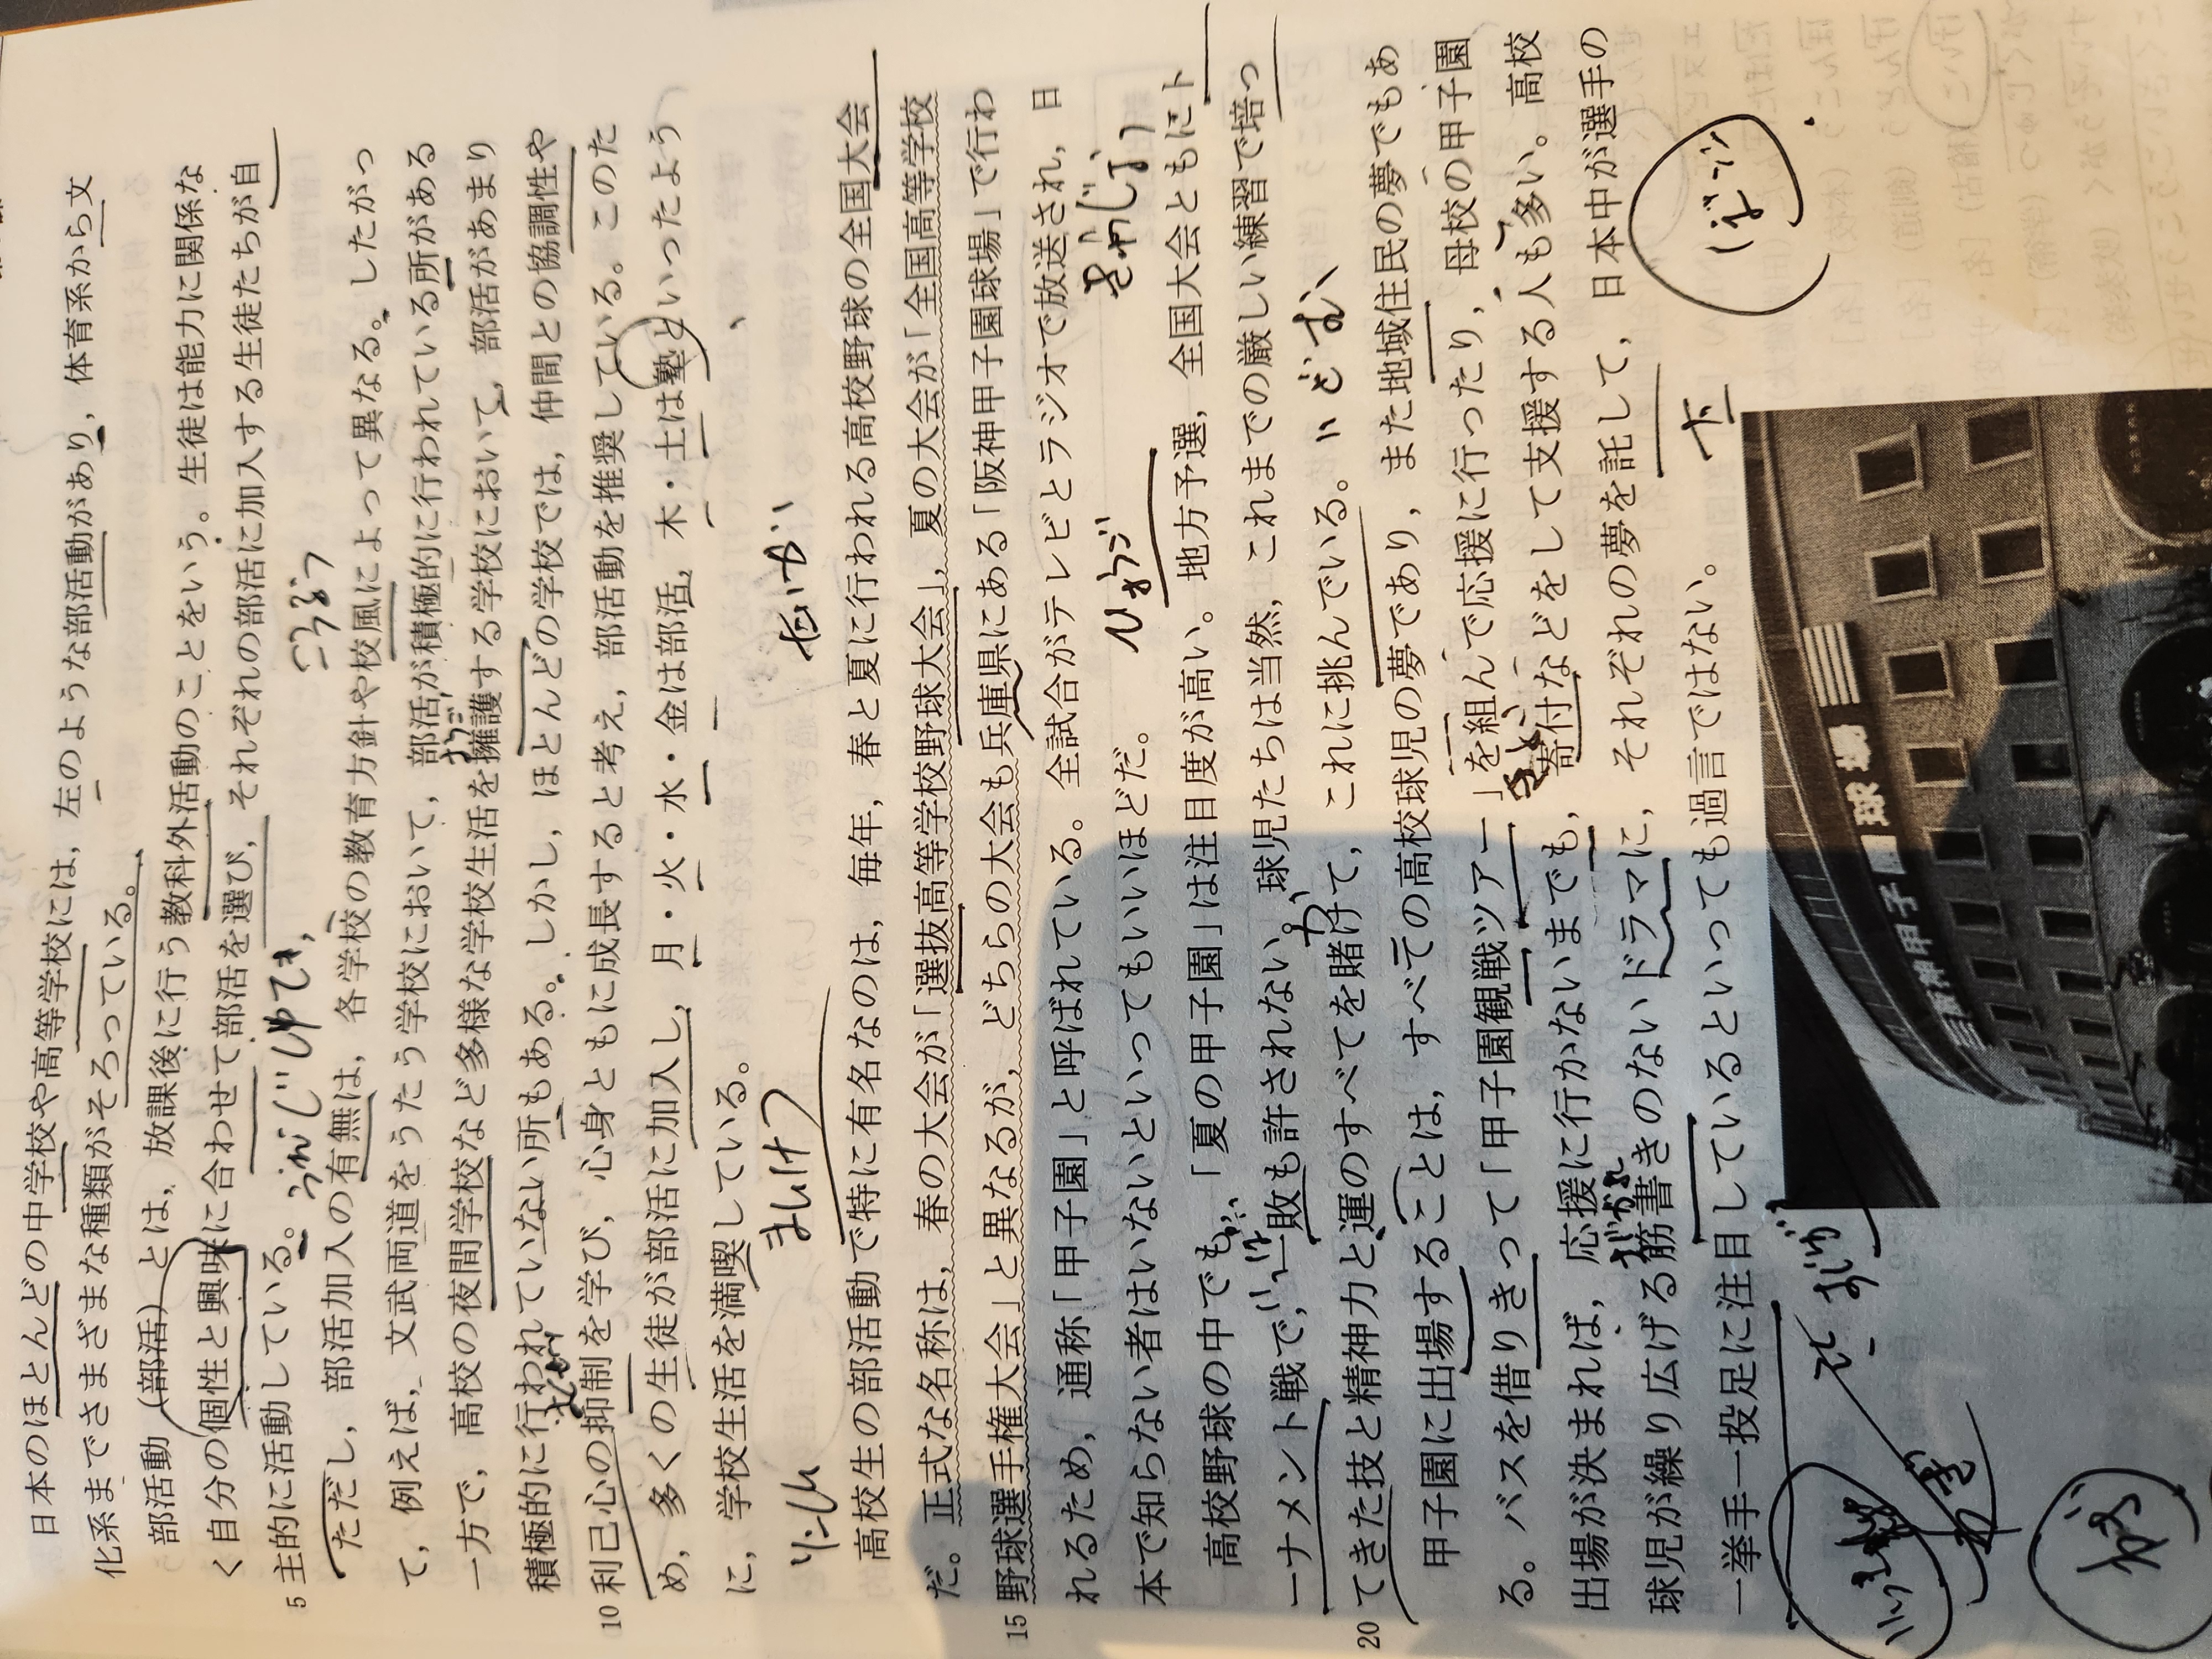 日本のほとんどの中学校や高等学校には，左のような部活動があり，体育系から文
化系までさまざまな種類がそろっている。
部活動（部活）とは，放課後に行う教科外活動のことをいう。生徒は能力に関係な
く自分の個性と興味に合わせて部活を選び，それぞれの部活に加入する生徒たちが自
5 主的に活動している。
ただし，部活加入の有無は，各学校の教育方針や校風によって異なる。したがっ
て，例えば，文武両道をうたう学校において，部活が積極的に行われている所がある
一方で，高校の夜間学校など多様な学校生活を擁護する学校において，部活があまり
積極的に行われていない所もある。しかし，ほとんどの学校では，仲間との協調性や
10 利己心の抑制を学び，心身ともに成長すると考え，部活動を推奨している。このた
め，多くの生徒が部活に加入し，月・火・水・金は部活，木・土は塾といったよう
に，学校生活を満喫している。
まんけつ
高校生の部活動で特に有名なのは，毎年，春と夏に行われる高校野球の全国大会
だ。正式な名称は，春の大会が「選抜高等学校野球大会」，夏の大会が「全国高等学校
15 野球選手権大会」と異なるが，どちらの大会も兵庫県にある「阪神甲子園球場」で行わ
れるため，通称「甲子園」と呼ばれている。全試合がテレビとラジオで放送され，日
本で知らない者はいないといってもいいほどだ。
高校野球の中でも，「夏の甲子園」は注目度が高い。地方予選，全国大会ともにト
ーナメント戦で，一敗も許されない。球児たちは当然，これまでの厳しい練習で培っ
20 てきた技と精神力と運のすべてを賭けて，これに挑んでいる。
いどむ
甲子園に出場することは，すべての高校球児の夢であり，また地域住民の夢でもあ
る。バスを借りきって「甲子園観戦ツアー」を組んで応援に行ったり，母校の甲子園
出場が決まれば，応援に行かないまでも，寄付などをして支援する人も多い。高校
球児が繰り広げる筋書きのないドラマに，それぞれの夢を託して，日本中が選手の
一挙手一投足に注目しているといっても過言ではない。
阪神甲子園球場